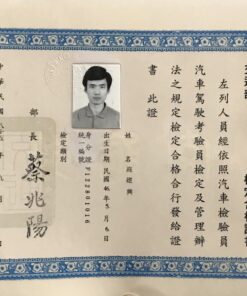 左列人員經依照汽車檢驗員
汽車駕駛考驗員檢定及管理辦
法之規定檢定合格合行發給證
書 此 證
姓 名
出生日期 民國 46 年 5 月 6 日
身分證
統一編號 F122801016
檢定類別
部 長 蔡兆陽
中 華 民 國